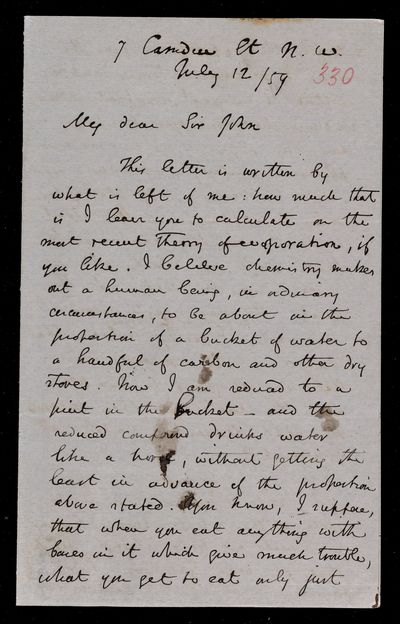 7 Camden St N. W.
July 12/59
330
My dear Sir John
This letter is written by
what is left of me: how much that
is I leave you to calculate on the
most recent theory of evaporation, if
you like. I believe chemistry makes
out a human being, in ordinary
circumstances, to be about in the
proportion of a bucket of water to
a handful of carbon and other dry
stores. Now I am reduced to a
pint in the bucket - and the
reduced compound drinks water
like a horse, without getting the
least in advance of the proportion
above stated. You know, I suppose,
that when you eat anything with
bones in it which give much trouble,
what you get to eat only just